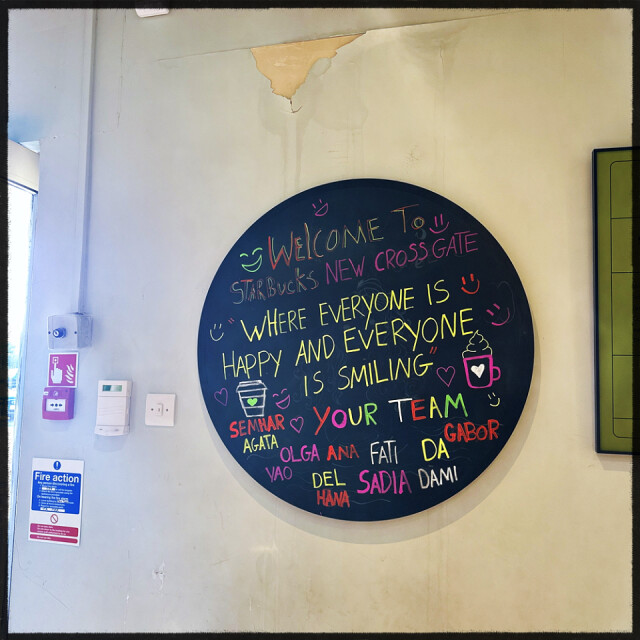 WELCOME TO
STARBUCKS NEW CROSS GATE
"WHERE EVERYONE IS
HAPPY AND EVERYONE
IS SMILING"
YOUR TEAM
SEMHAR GABOR
AGATA OLGA ANA FATI DA
YAO DEL SADIA DAMI
HANA
Fire action